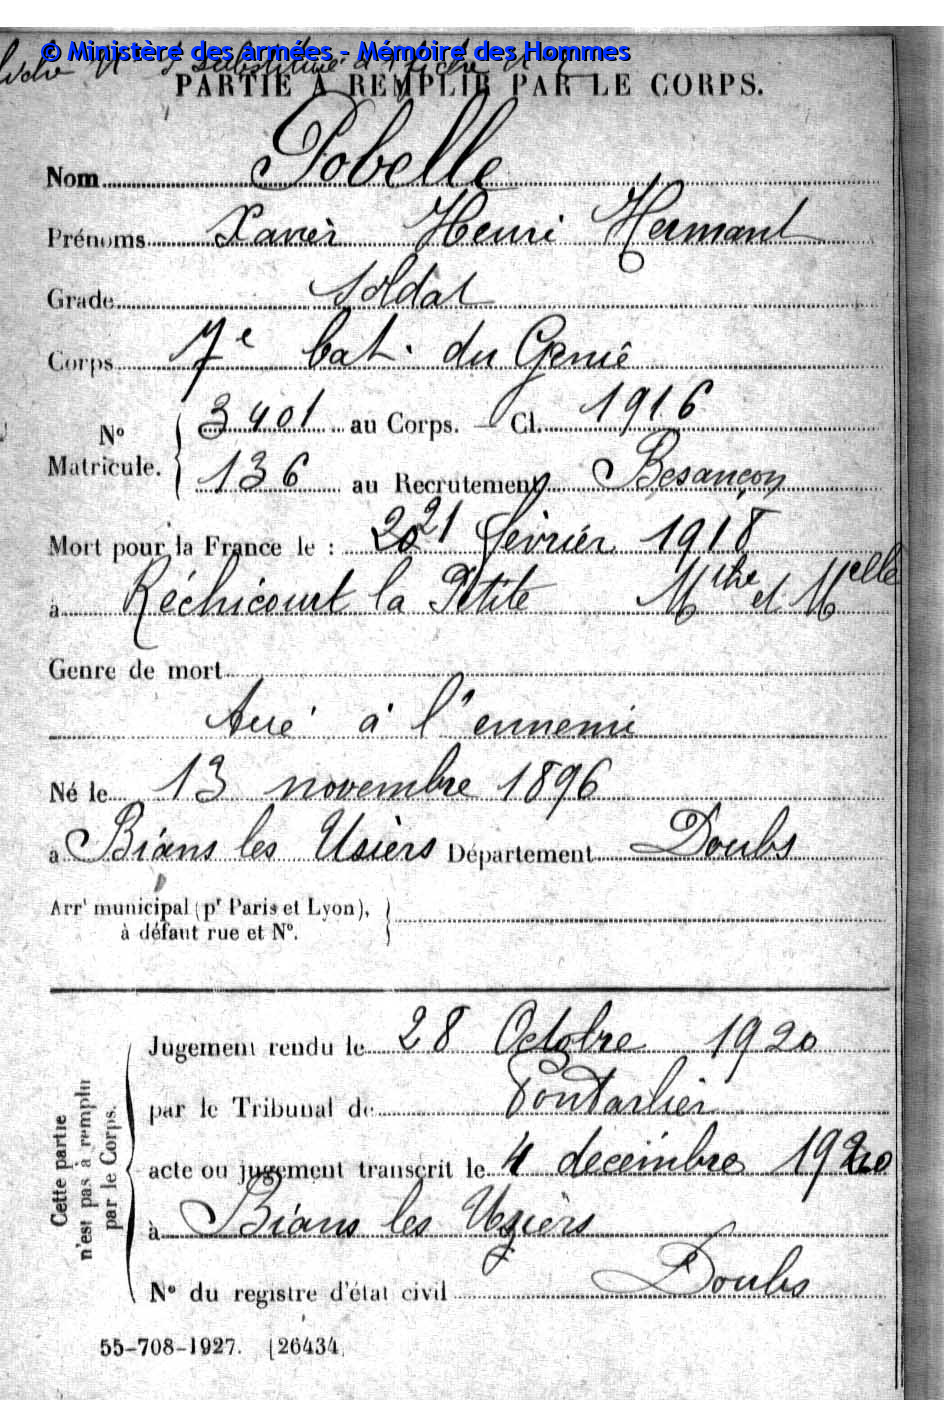 © Ministère des armées - Mémoire des Hommes
fiche N° 2 substituée à fiche N°
PARTIE À REMPLIR PAR LE CORPS.
Nom Pobelle
Prénoms Xavier Henri Hermant
Grade Soldat
Corps 7e bat. du Génie
N° Matricule. 3401 au Corps. — Cl. 1916
136 au Recrutement Besançon
Mort pour la France le : 20 21 février 1918
à Réchicourt la Petite Mthe et Melle
Genre de mort
Tué à l'ennemi
Né le 13 novembre 1896
à Bians les Usiers Département Doubs
Arrt municipal (pr Paris et Lyon),
à défaut rue et N°.
Cette partie n'est pas à remplir par le Corps.
Jugement rendu le 28 Octobre 1920
par le Tribunal de Pontarlier
acte ou jugement transcrit le 4 décembre 1920
à Bians les Usiers
N° du registre d'état civil Doubs
55-708-1927. [26434.